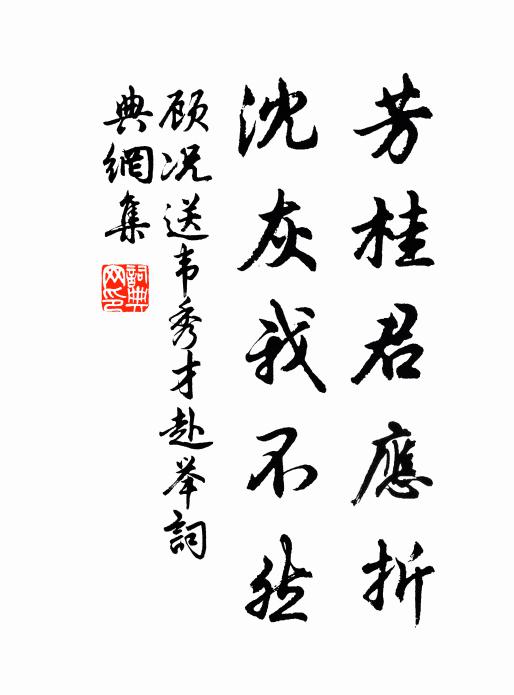 芳桂君應折
沈灰我不然
顾况送韦秀才赴举詞
典網集
詞典
网印